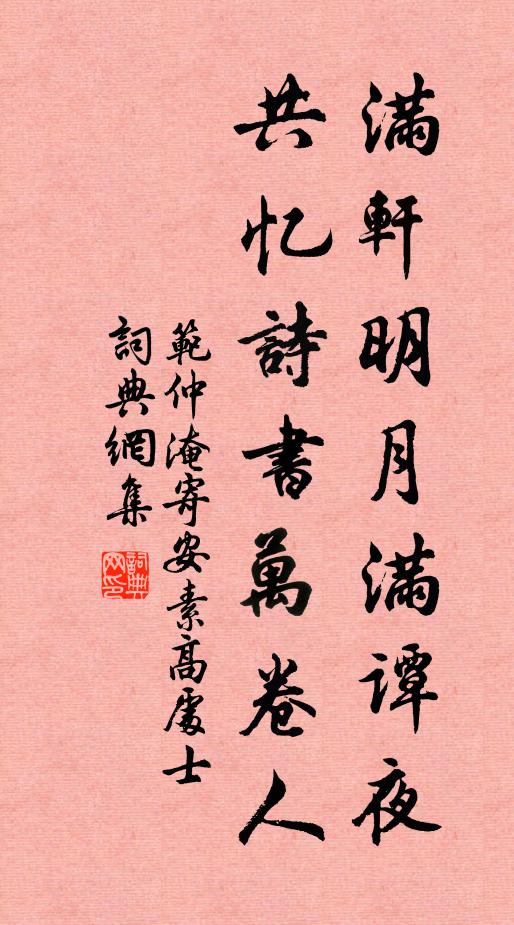 满軒明月满谭夜
共忆詩書萬卷人
範仲淹寄安素高處士
詞典網集
詞典网印